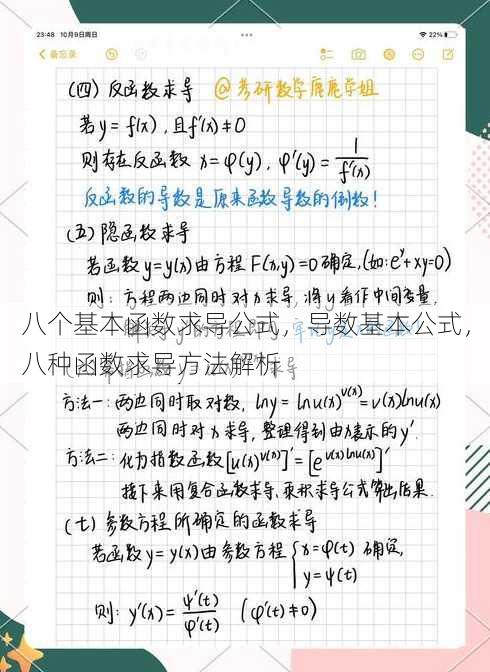 23:48 10月9日周日
22%
备忘录
(四) 反函数求导 @考研数学鹿鹿学姐
若y = f(x), 且f'(x)≠0
则存在反函数 x=φ(y), φ'(y)= 1/f'(x)
反函数的导数是原来函数导数的倒数!
(五) 隐函数求导
若函数y=y(x)由方程F(x,y)=0确定,(如:e^y+xy=0)
则: 方程两边同时对x求导,将y看作中间变量,
八个基本函数求导公式，导数基本公式，
八种函数求导方法解析
方法一:两边同时取对数, lny = lnu(x)^v(x)=v(x)lnu(x)
两边同时对x求导,整理得到由x表示的y'.
方法二:化为指数函数[u(x)^v(x)]'=[e^v(x)lnu(x)]'
接下来用复合函数求导、乘积求导公式算出结果.
(七) 参数方程所确定的函数求导
若函数y=y(x)由参数方程{x=φ(t) 确定,
y=ψ(t)
则: y'(x)= ψ'(t)/φ'(t) (φ'(t)≠0)